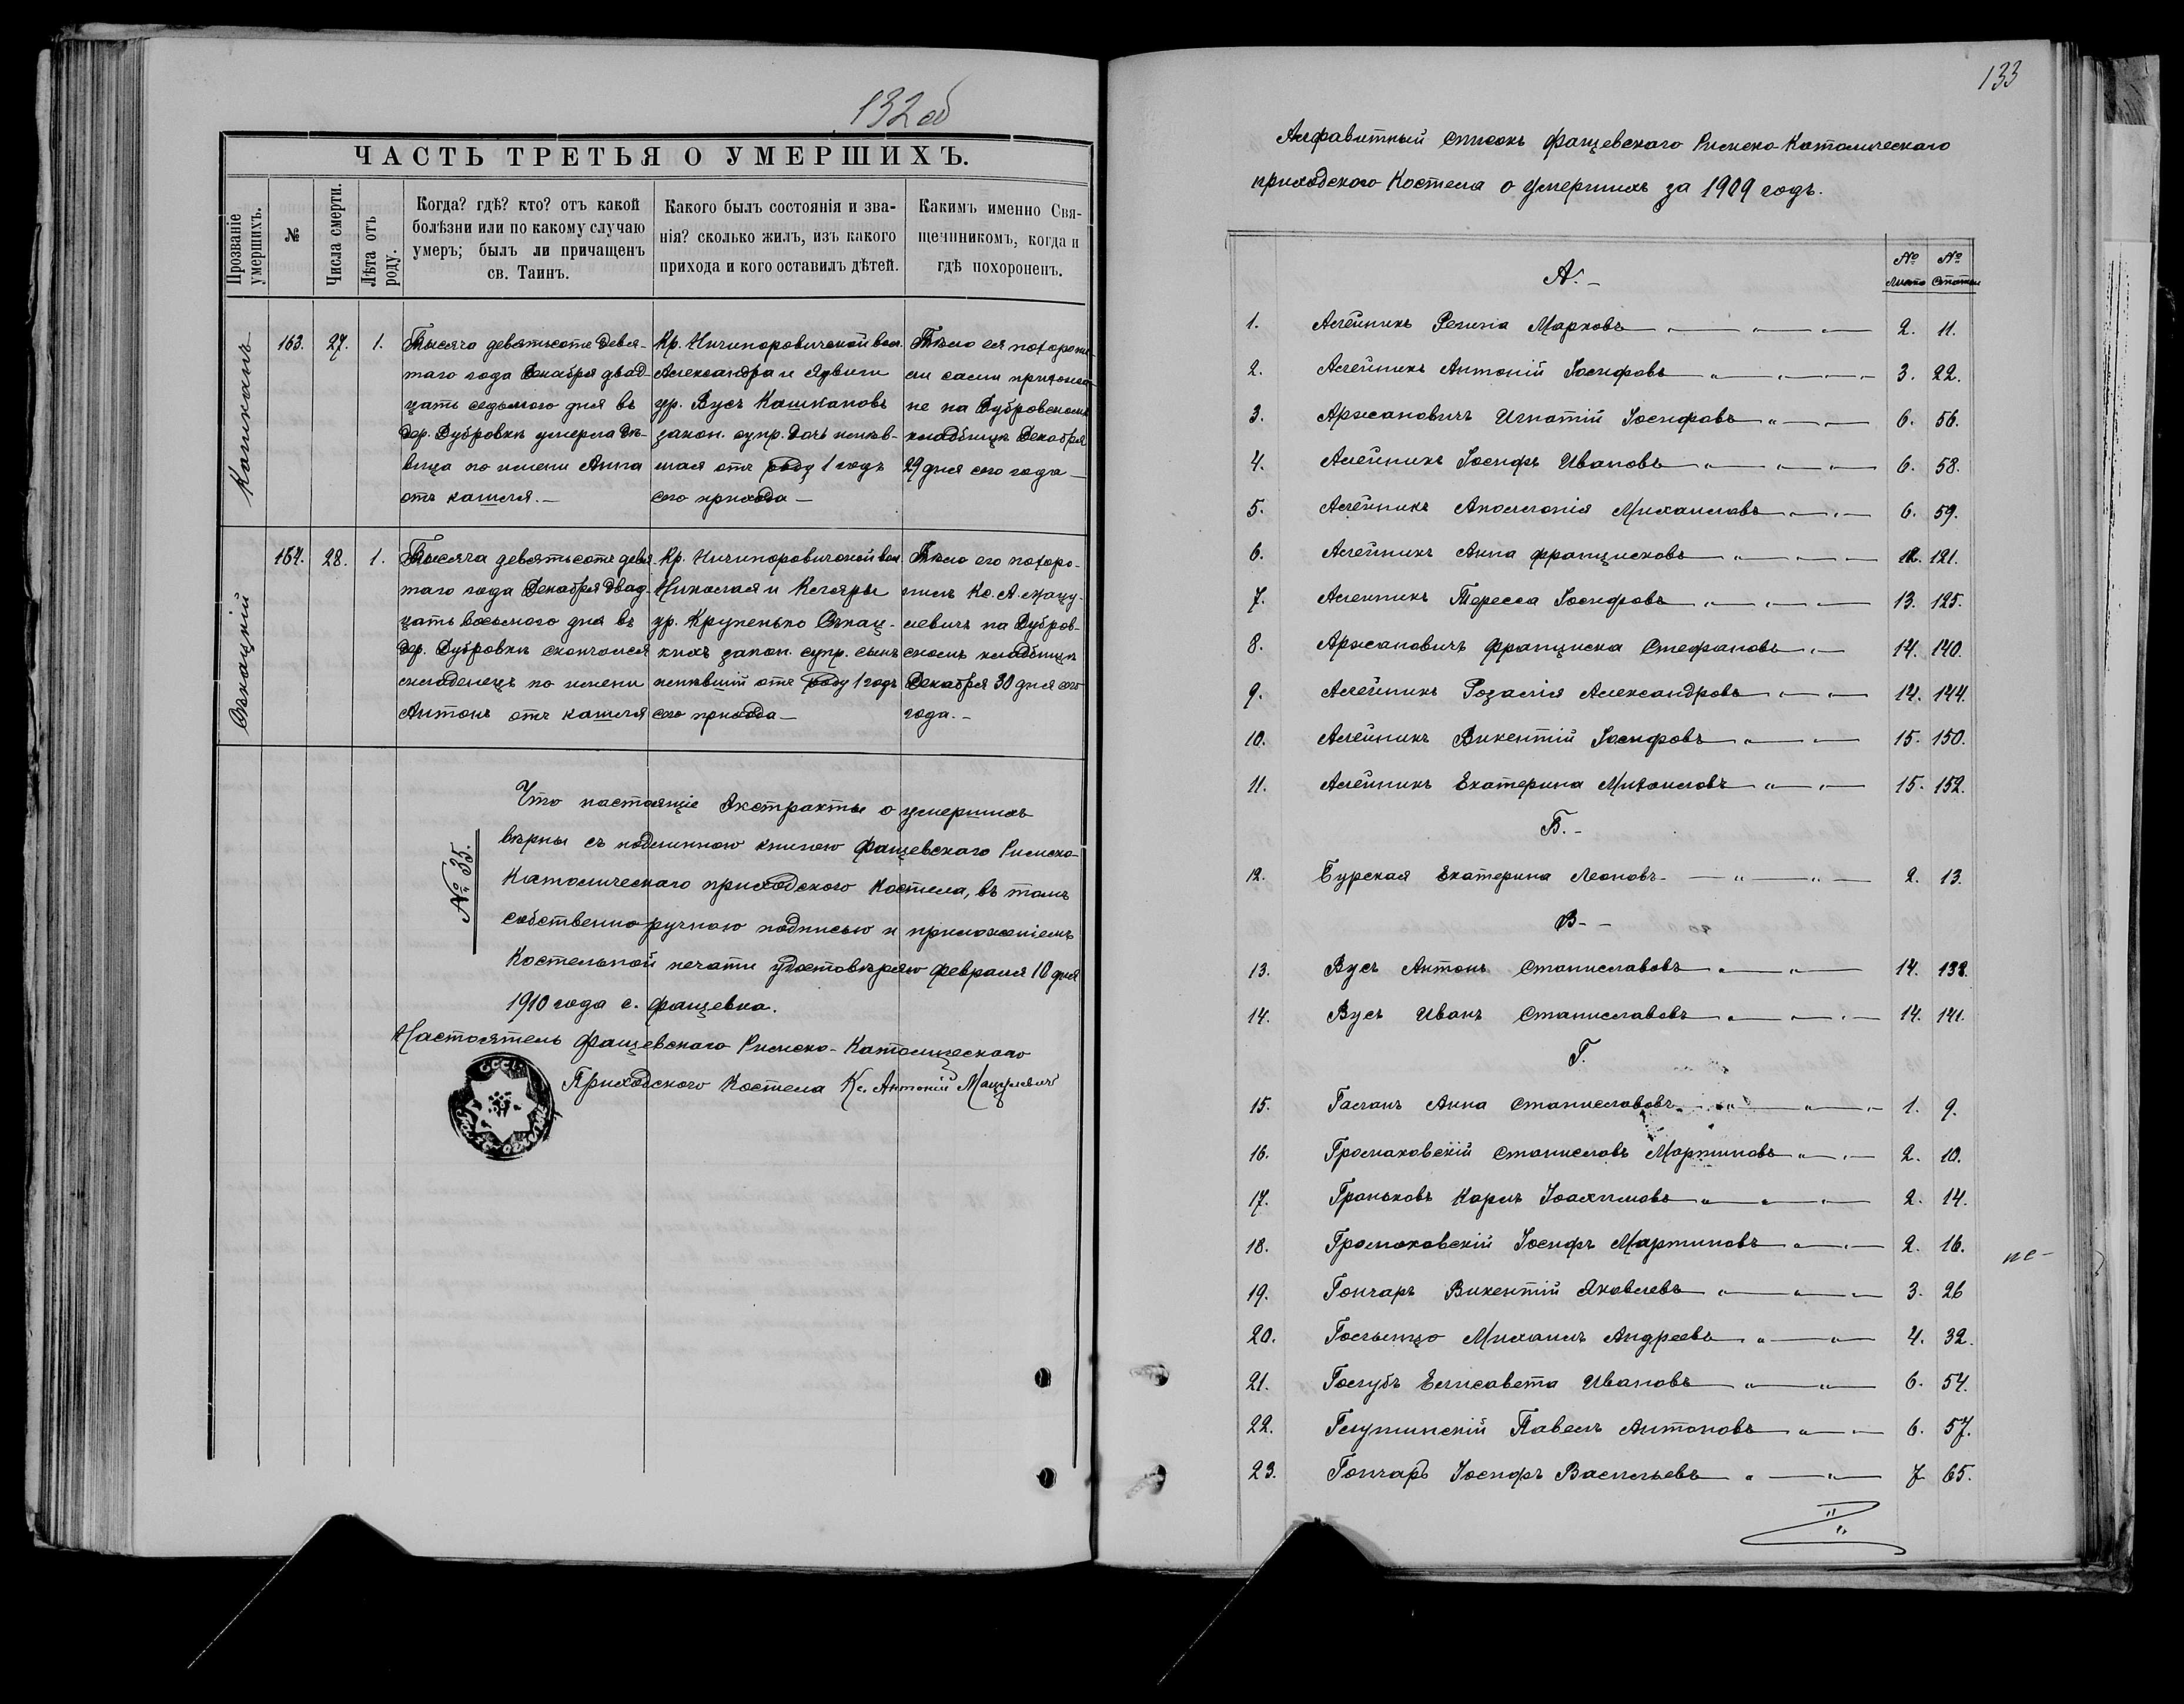 132об
ЧАСТЬ ТРЕТЬЯ О УМЕРШИХЪ.
Прозваніе умершихъ.
№
Числа смерти.
Лѣта отъ роду.
Когда? гдѣ? кто? отъ какой
болѣзни или по какому случаю
умеръ; былъ ли причащенъ
св. Таинъ.
Какого былъ состоянія и зва-
нія? сколько жилъ, изъ какого
прихода и кого оставилъ дѣтей.
Какимъ именно Свя-
щенникомъ, когда и
гдѣ похороненъ.
Кошканъ
163. 27. 1.
Тысяча девятьсотъ девя-
таго года Декабря двад-
цать седьмого дня въ
дер. Дубровкѣ умерла дѣ-
вица по имени Анна
отъ кашля.—
Кр. Ничипоровичской вол.
Александра и Ядвиги
ур. Вусъ Кошкановъ
закон. супр. дочь имѣв-
шая отъ роду 1 годъ
сего прихода—
Тѣло ея похорони-
ли сами прихожа-
не на Дубровскомъ
кладбищѣ Декабря
29 дня сего года—
Сѣкацкій
164. 28. 1.
Тысяча девятьсотъ девя-
таго года Декабря двад-
цать восьмого дня въ
дер. Дубровкѣ скончался
младенецъ по имени
Антонъ отъ кашля
Кр. Ничипоровичской вол.
Николая и Кляры
ур. Крупенько Сѣкац-
кихъ закон. супр. сынъ
имѣвшій отъ роду 1 годъ
сего прихода—
Тѣло его похоро-
нилъ Кс. А. Мацу-
левичъ на Дубров-
скомъ кладбищѣ
Декабря 30 дня сего
года.—
№ 35.
Что настоящіе Экстракты о умершихъ
вѣрны съ подлинною книгою Фащевскаго Римско-
Католическаго приходского Костела, въ томъ
собственноручною подписью и приложеніемъ
Костельной печати удостовѣряю Февраля 10 дня
1910 года с. Фащевка.
Настоятель Фащевскаго Римско-Католическаго
Приходского Костела Кс. Антоній Мацулевичъ
133
Алфавитный списокъ Фащевскаго Римско-Католическаго
приходского Костела о умершихъ за 1909 годъ.
А.— № листа № статьи
1. Алейникъ Регина Марковъ 2. 11.
2. Алейникъ Антоній Іосифовъ 3. 22.
3. Аржановичъ Игнатій Іосифовъ 6. 56.
4. Алейникъ Іосифъ Ивановъ 6. 58.
5. Алейникъ Аполлонія Михаиловъ 6. 59.
6. Алейникъ Анна Францисковъ 12. 121.
7. Алейникъ Тересса Іосифовъ 13. 125.
8. Аржановичъ Франциска Стефановъ 14. 140.
9. Алейникъ Розалія Александровъ 14. 144.
10. Алейникъ Викентій Іосифовъ 15. 150.
11. Алейникъ Екатерина Михаиловъ 15. 152.
Б.—
12. Бурская Екатерина Леоновъ 2. 13.
В—
13. Вусъ Антонъ Станиславовъ 14. 138.
14. Вусъ Иванъ Станиславовъ 14. 141.
Г.
15. Галанъ Анна Станиславовъ 1. 9.
16. Громаковскій Станиславъ Мартиновъ 2. 10.
17. Граньковъ Карлъ Іоахимовъ 2. 14.
18. Громаковскій Іосифъ Мартиновъ 2. 16.
19. Гончаръ Викентій Яковлевъ 3. 26
20. Михаилъ Андреевъ 4. 32.
21. Голубъ Елисавета Ивановъ 6. 54.
22. Павелъ Антоновъ 6. 57.
23. Гончаръ Іосифъ Васильевъ 7 65.